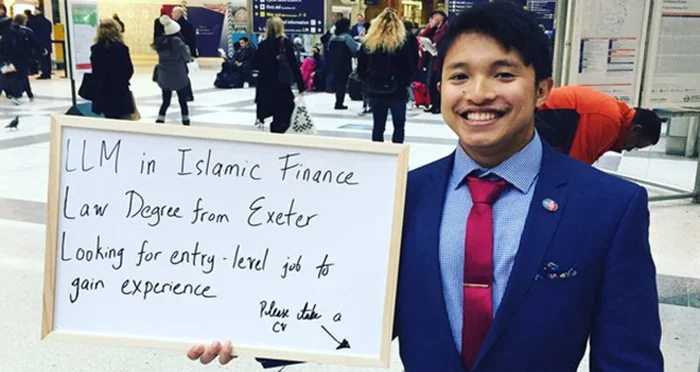 LLM in Islamic Finance
Law Degree from Exeter
Looking for entry-level job to
gain experience
Please take a
CV